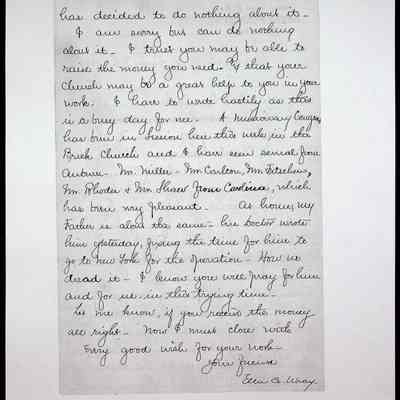 has decided to do nothing about it -
I am sorry but can do nothing
about it - I trust you may be able to
raise the money you need. & that your
Church may be a great help to you in your
work. I have to write hastily as this
is a busy day for me. A Missionary Congress
has been in session here this week in the
Brick Church and I have seen several from
Auburn. Mr. Miller - Mr. Carlton, Mr.
Mr. Rhodes & Mr. Shaw from Carolina, which
has been very pleasant. At home, my
Father is about the same - his Doctor wrote
him yesterday, fixing the time for him to
go to New York for the operation - How we
dread it - I know you will pray for him
and for us in this trying time -
Let me know, if you receive the money
all right - Now I must close with
Every good wish for your work -
Your friend
Ellen G. Wray